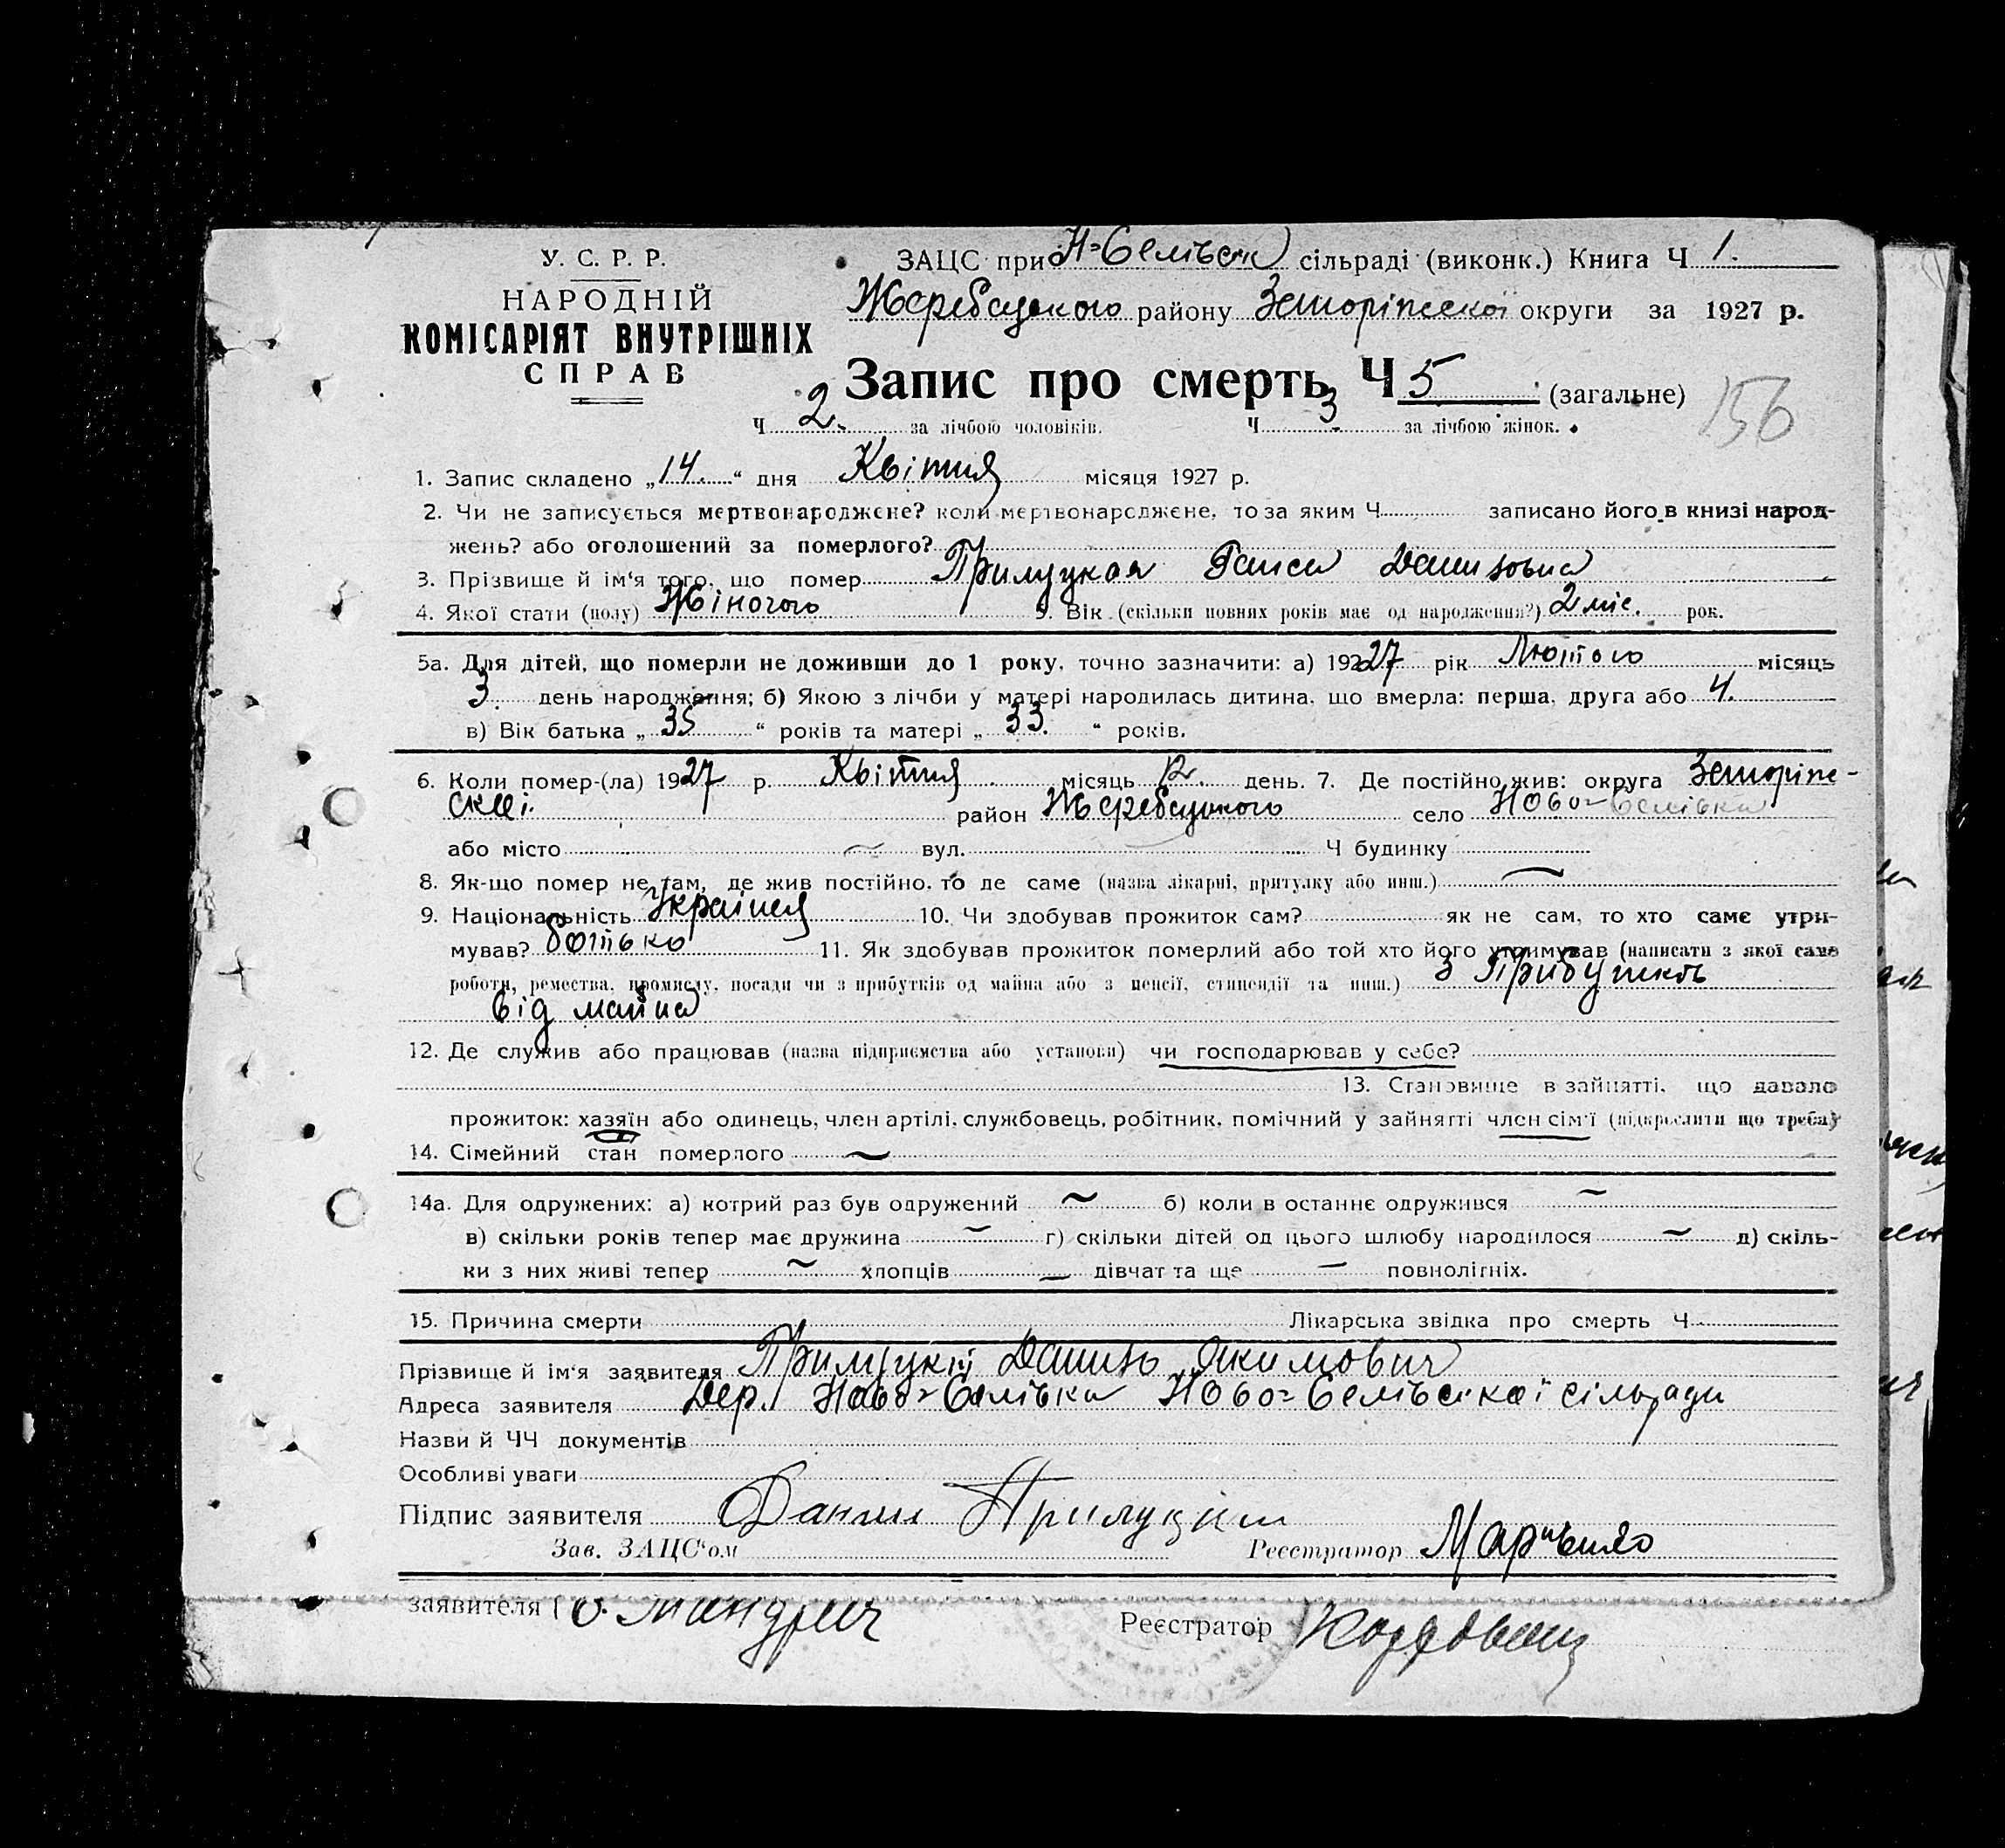 У. С. Р. Р.
НАРОДНІЙ
КОМІСАРІЯТ ВНУТРІШНІХ
СПРАВ
ЗАЦС при Н=Селівськ сільраді (виконк.) Книга Ч 1.
Жеребецького району Запоріжської округи за 1927 р.
Запис про смерть Ч 5 (загальне)
156
Ч 2. за лічбою чоловіків. Ч 3 за лічбою жінок.
1. Запис складено „14.“ дня Квітня місяця 1927 р.
2. Чи не записується мертвонароджене? коли мертвонароджене, то за яким Ч записано його в книзі народ-
жень? або оголошений за померлого?
3. Прізвище й ім'я того, що помер Прилуцкая Таиса Данизовна
4. Якої стати (полу) Жіночого 5. Вік (скільки повних років має од народження?) 2 міс. рок.
5а. Для дітей, що померли не доживши до 1 року, точно зазначити: а) 19227 рік Лютого місяць
3. день народження; б) Якою з лічби у матері народилась дитина, що вмерла: перша, друга або 4.
в) Вік батька „ 35 “ років та матері „ 33. “ років.
6. Коли помер-(ла) 1927 р. Квітня місяць 12. день. 7. Де постійно жив: округа Запоріж-
скої район Жеребецького село Ново=Селівка
або місто вул. Ч будинку
8. Як-що помер не там, де жив постійно, то де саме (назва лікарні, притулку або инш.)
9. Національність Україня 10. Чи здобував прожиток сам? як не сам, то хто саме утри-
мував? батько 11. Як здобував прожиток померлий або той хто його утримував (написати з якої саме
роботи, ремества, промислу, посади чи з прибутків од майна або з пенсії, стипендії та инш.) з Прибутків
від майна
12. Де служив або працював (назва підприємства або установи) чи господарював у себе?
13. Становище в зайнятті, що давало
прожиток: хазяїн або одинець, член артілі, службовець, робітник, помічний у зайнятті член сім'ї (підкреслити що треба)
14. Сімейний стан померлого
14а. Для одружених: а) котрий раз був одружений б) коли в останнє одружився
в) скільки років тепер має дружина г) скільки дітей од цього шлюбу народилося д) скіль-
ки з них живі тепер хлопців дівчат та ще повнолітніх.
15. Причина смерти Лікарська звідка про смерть Ч
Прізвище й ім'я заявителя Прилуцкій Данизо Якимович
Адреса заявителя Дер. Ново=Селівка Ново=Селівської сільради
Назви й ЧЧ документів
Особливі уваги
Підпис заявителя Данил Прилуцкій
Зав. ЗАЦС'ом Реєстратор
заявителя
Реєстратор